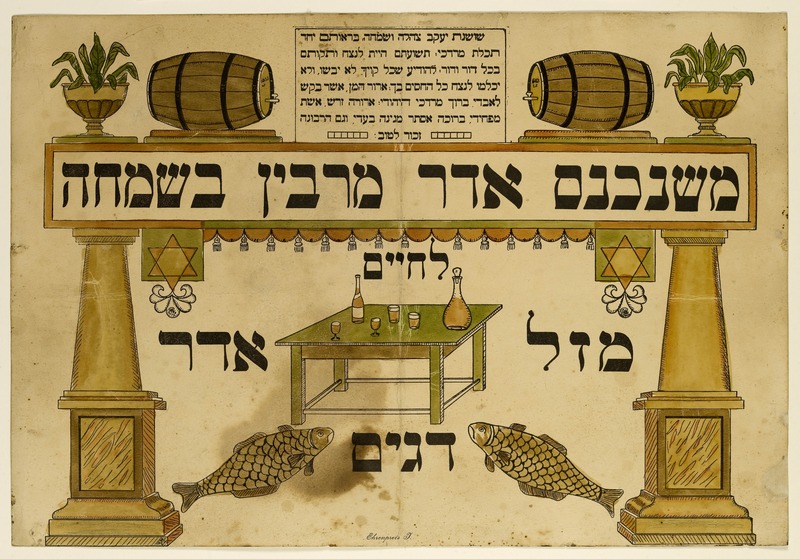 שושנת יעקב צהלה ושמחה, בראותם יחד
תכלת מרדכי: תשועתם היית לנצח ותקותם
בכל דור ודור: להודיע שכל קויך לא יבשו, ולא
יכלמו לנצח כל החסים בך: ארור המן, אשר בקש
לאבדי, ברוך מרדכי היהודי: ארורה זרש, אשת
מפחידי, ברוכה אסתר מגינה בעדי, וגם חרבונה
זכור לטוב:
משנכנס אדר מרבין בשמחה
לחיים
מזל אדר
דגים
Ehrenpreis J.